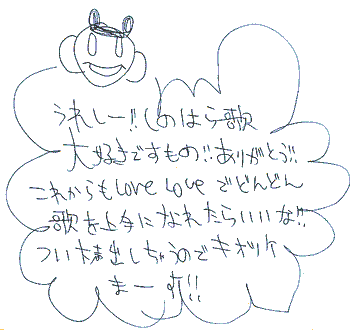 うれしー!!しのはら歌
大好きですもの!!ありがとう!!
これからもLove Loveでどんどん
歌を上手になれたらいいな!!
つい大声出しちゃうのでキオツケ
まーす!!